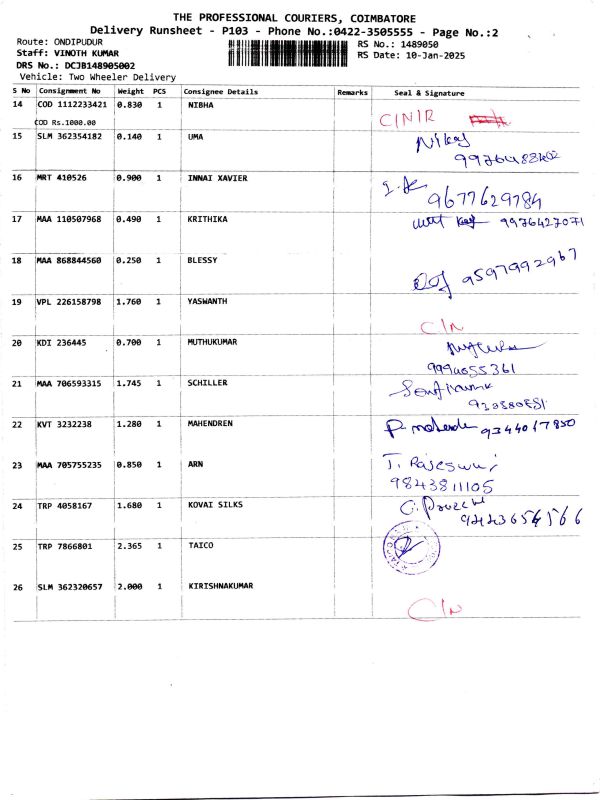 THE PROFESSIONAL COURIERS, COIMBATORE
Delivery Runsheet - P103 - Phone No.:0422-3505555 - Page No.:2
Route: ONDIPUDUR RS No.: 1489050
Staff: VINOTH KUMAR RS Date: 10-Jan-2025
DRS No.: DCJB148905002
Vehicle: Two Wheeler Delivery
S No Consignment No Weight PCS Consignee Details Remarks Seal & Signature
14 COD 1112233421 0.830 1 NIBHA
COD Rs.1000.00 C/N/R
15 SLM 362354182 0.140 1 UMA
16 MRT 410526 0.900 1 INNAI XAVIER
9677629784
17 MAA 110507968 0.490 1 KRITHIKA 9976427071
18 MAA 868844560 0.250 1 BLESSY
9597992967
19 VPL 226158798 1.760 1 YASWANTH
C/N
20 KDI 236445 0.700 1 MUTHUKUMAR
9994055361
21 MAA 706593315 1.745 1 SCHILLER
22 KVT 3232238 1.280 1 MAHENDREN 9344017850
23 MAA 705755235 0.850 1 ARN T. Rajeswari
9843811105
24 TRP 4058167 1.680 1 KOVAI SILKS
25 TRP 7866801 2.365 1 TAICO
26 SLM 362320657 2.000 1 KIRISHNAKUMAR
C/N